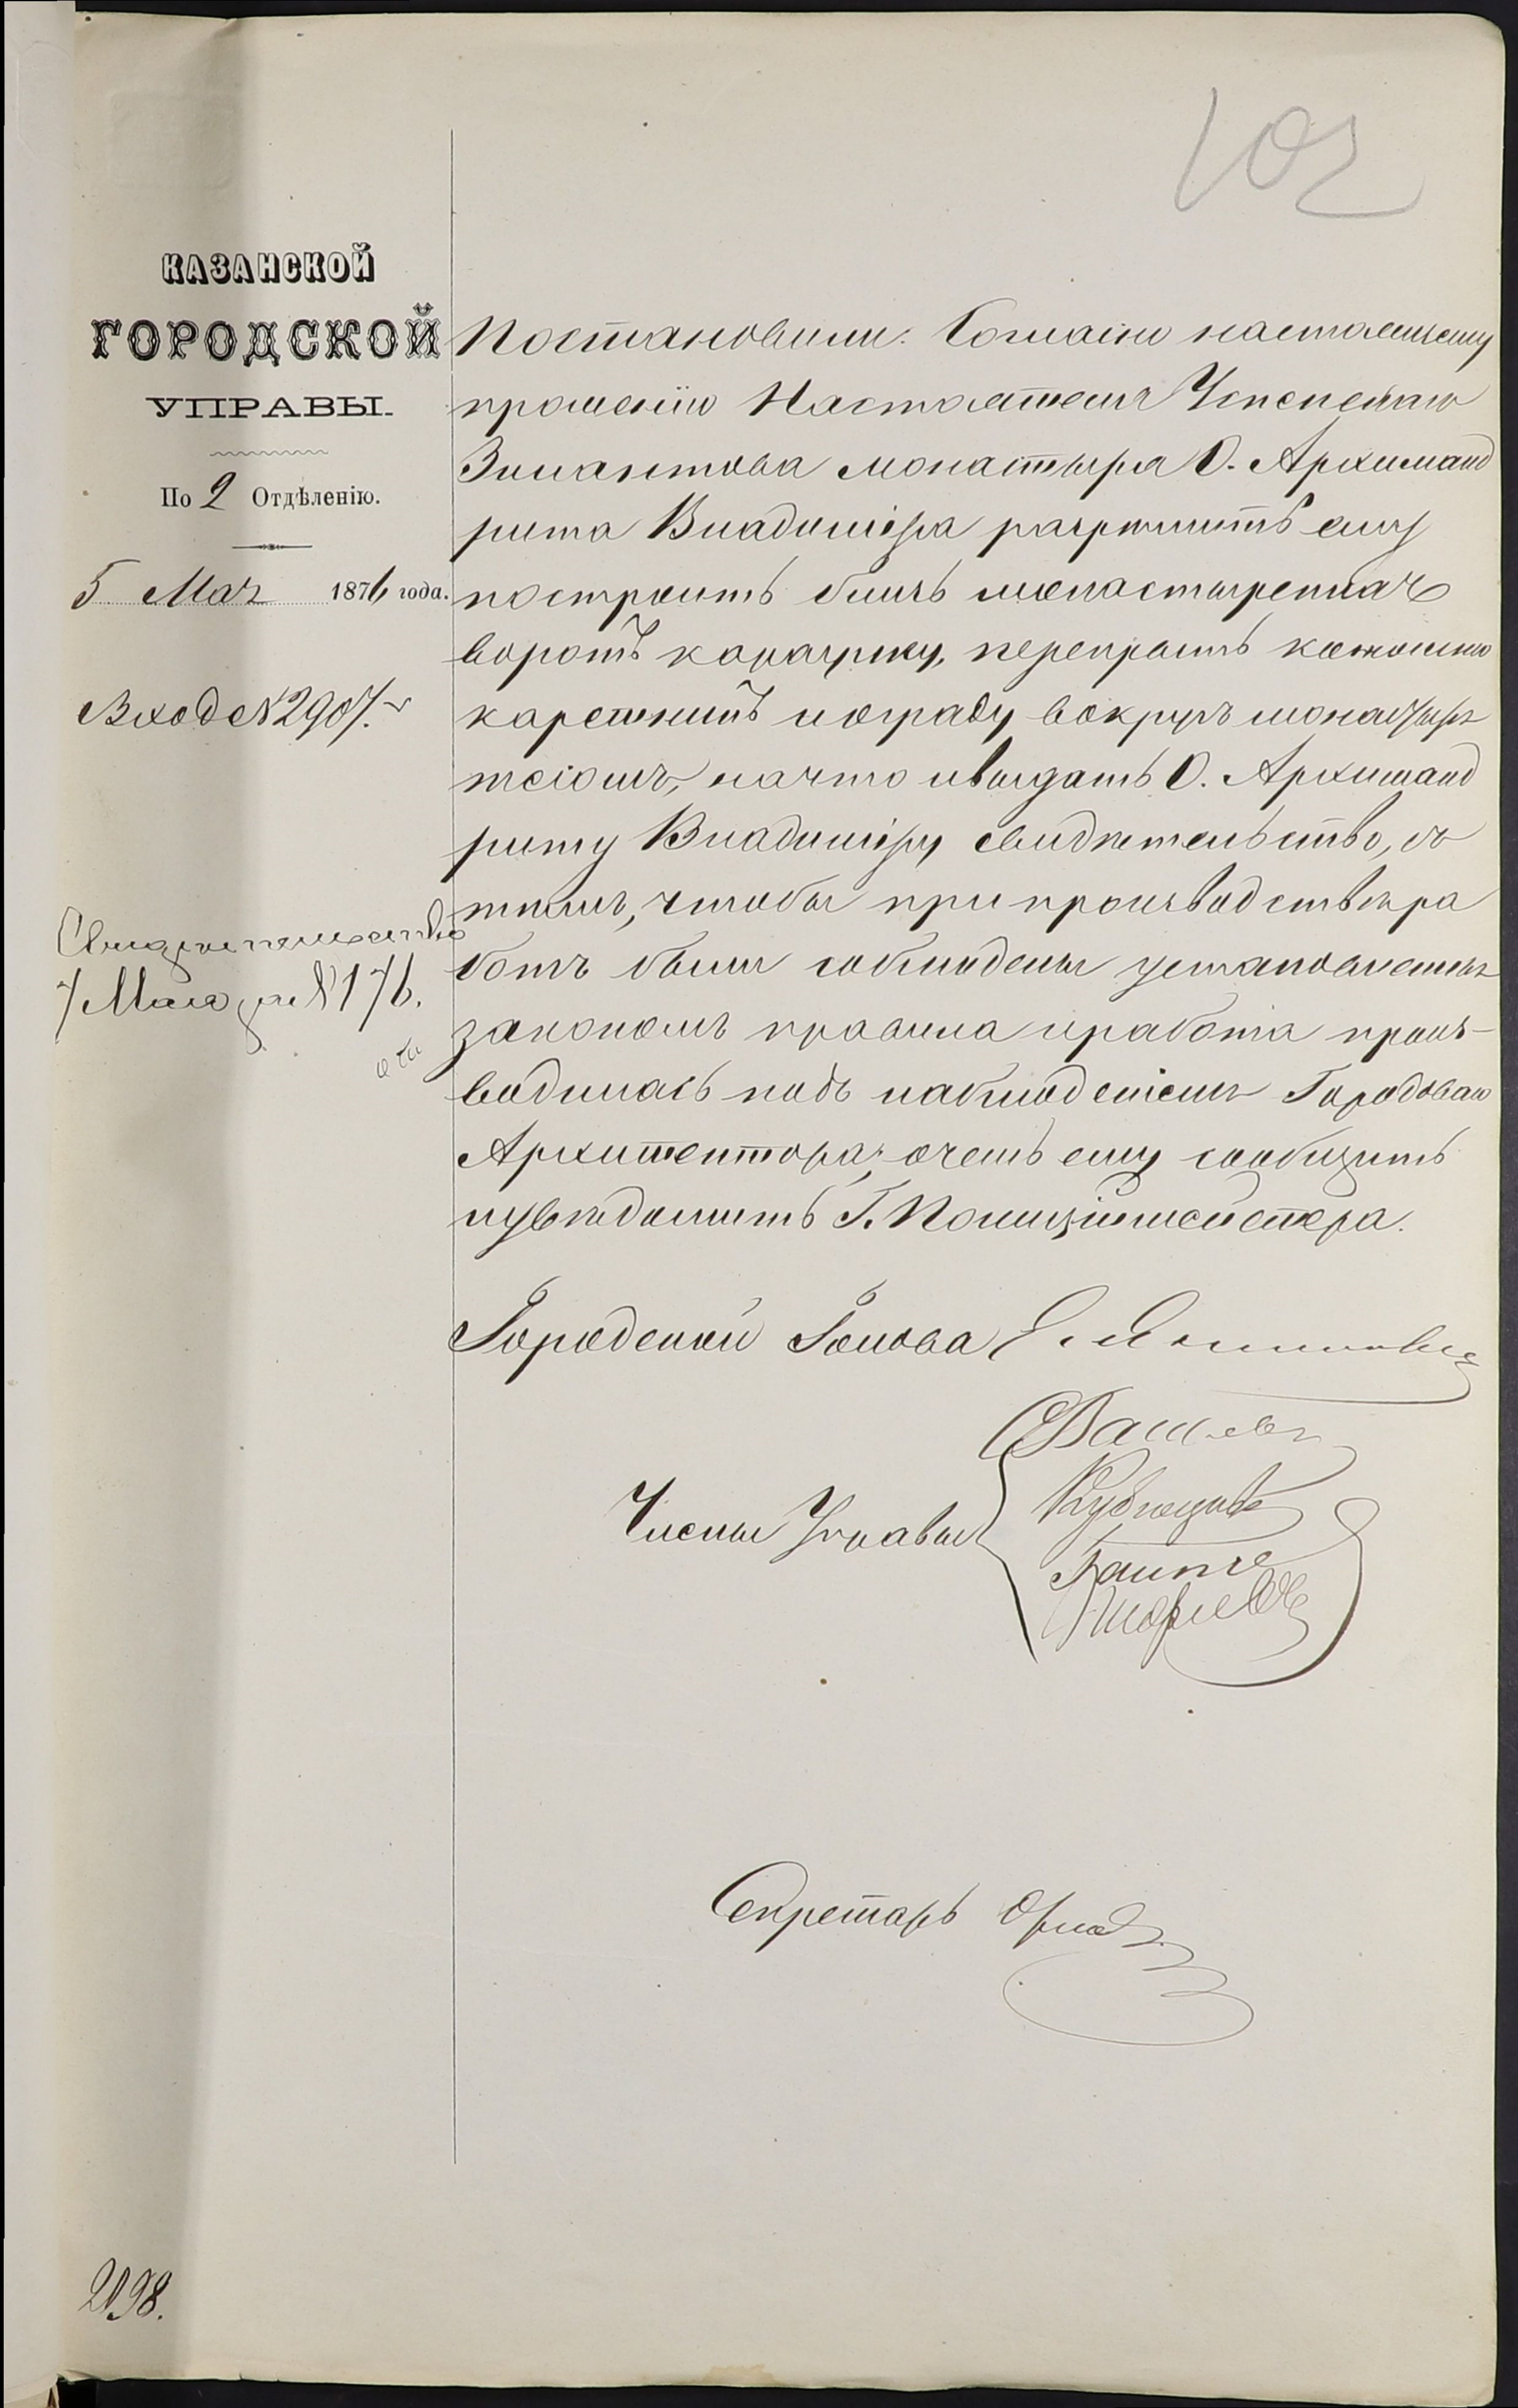 102
КАЗАНСКОЙ
ГОРОДСКОЙ
УПРАВЫ.
По 2 Отдѣленію.
5 Мая 1876 года.
Вход № 2907.
Свидѣтельство
7 Мая за № 176.
Постановили: Согласно настоящему
прошенію Настоятеля Успенскаго
Зилантова монастыря О. Архиманд
рита Владиміра разрѣшить ему
построить близь монастырскихъ
воротъ караулку, перекрыть
каретникъ и ограду вокругъ монастыр
на что и выдать О. Архиманд
риту Владиміру свидѣтельство, съ
тѣмъ, чтобы при производствѣ ра
ботъ были соблюдены установленныя
закономъ правила и работа произ-
водилась подъ наблюденіемъ Городоваго
Архитектора, о чемъ ему сообщить
и увѣдомить Г. Полиціймейстера.
Городской Голова
Члены Управы
Секретарь
2198.